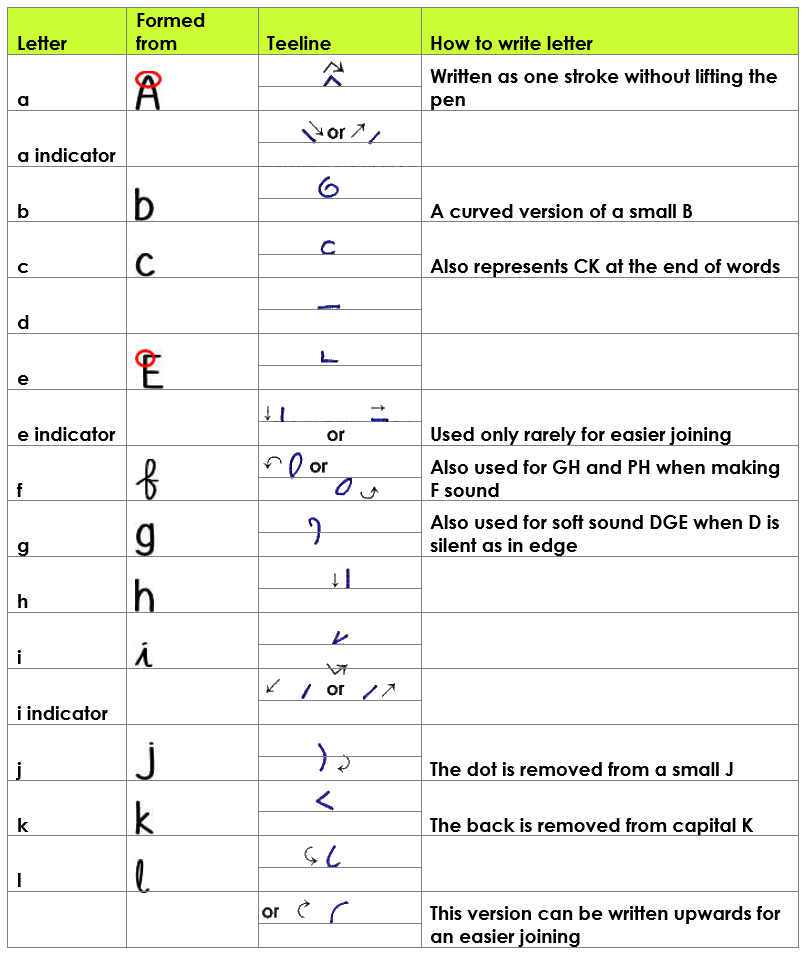 Letter Formed from Teeline How to write letter
a A Written as one stroke without lifting the pen
a indicator or
b b A curved version of a small B
c c Also represents CK at the end of words
d
e E
e indicator or Used only rarely for easier joining
f f or Also used for GH and PH when making F sound
g g Also used for soft sound DGE when D is silent as in edge
h h
i i
i indicator or
j j The dot is removed from a small J
k k The back is removed from capital K
l l
or This version can be written upwards for an easier joining